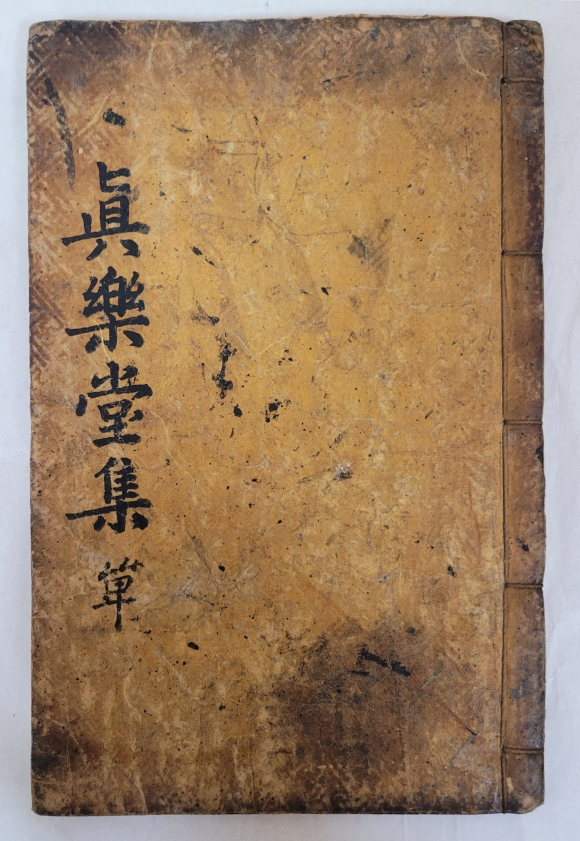 眞樂堂集 單